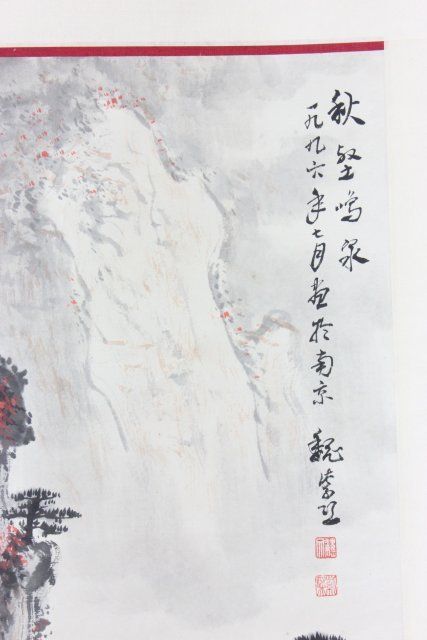 秋壑鸣泉
一九九六年七月画于南京
魏紫熙